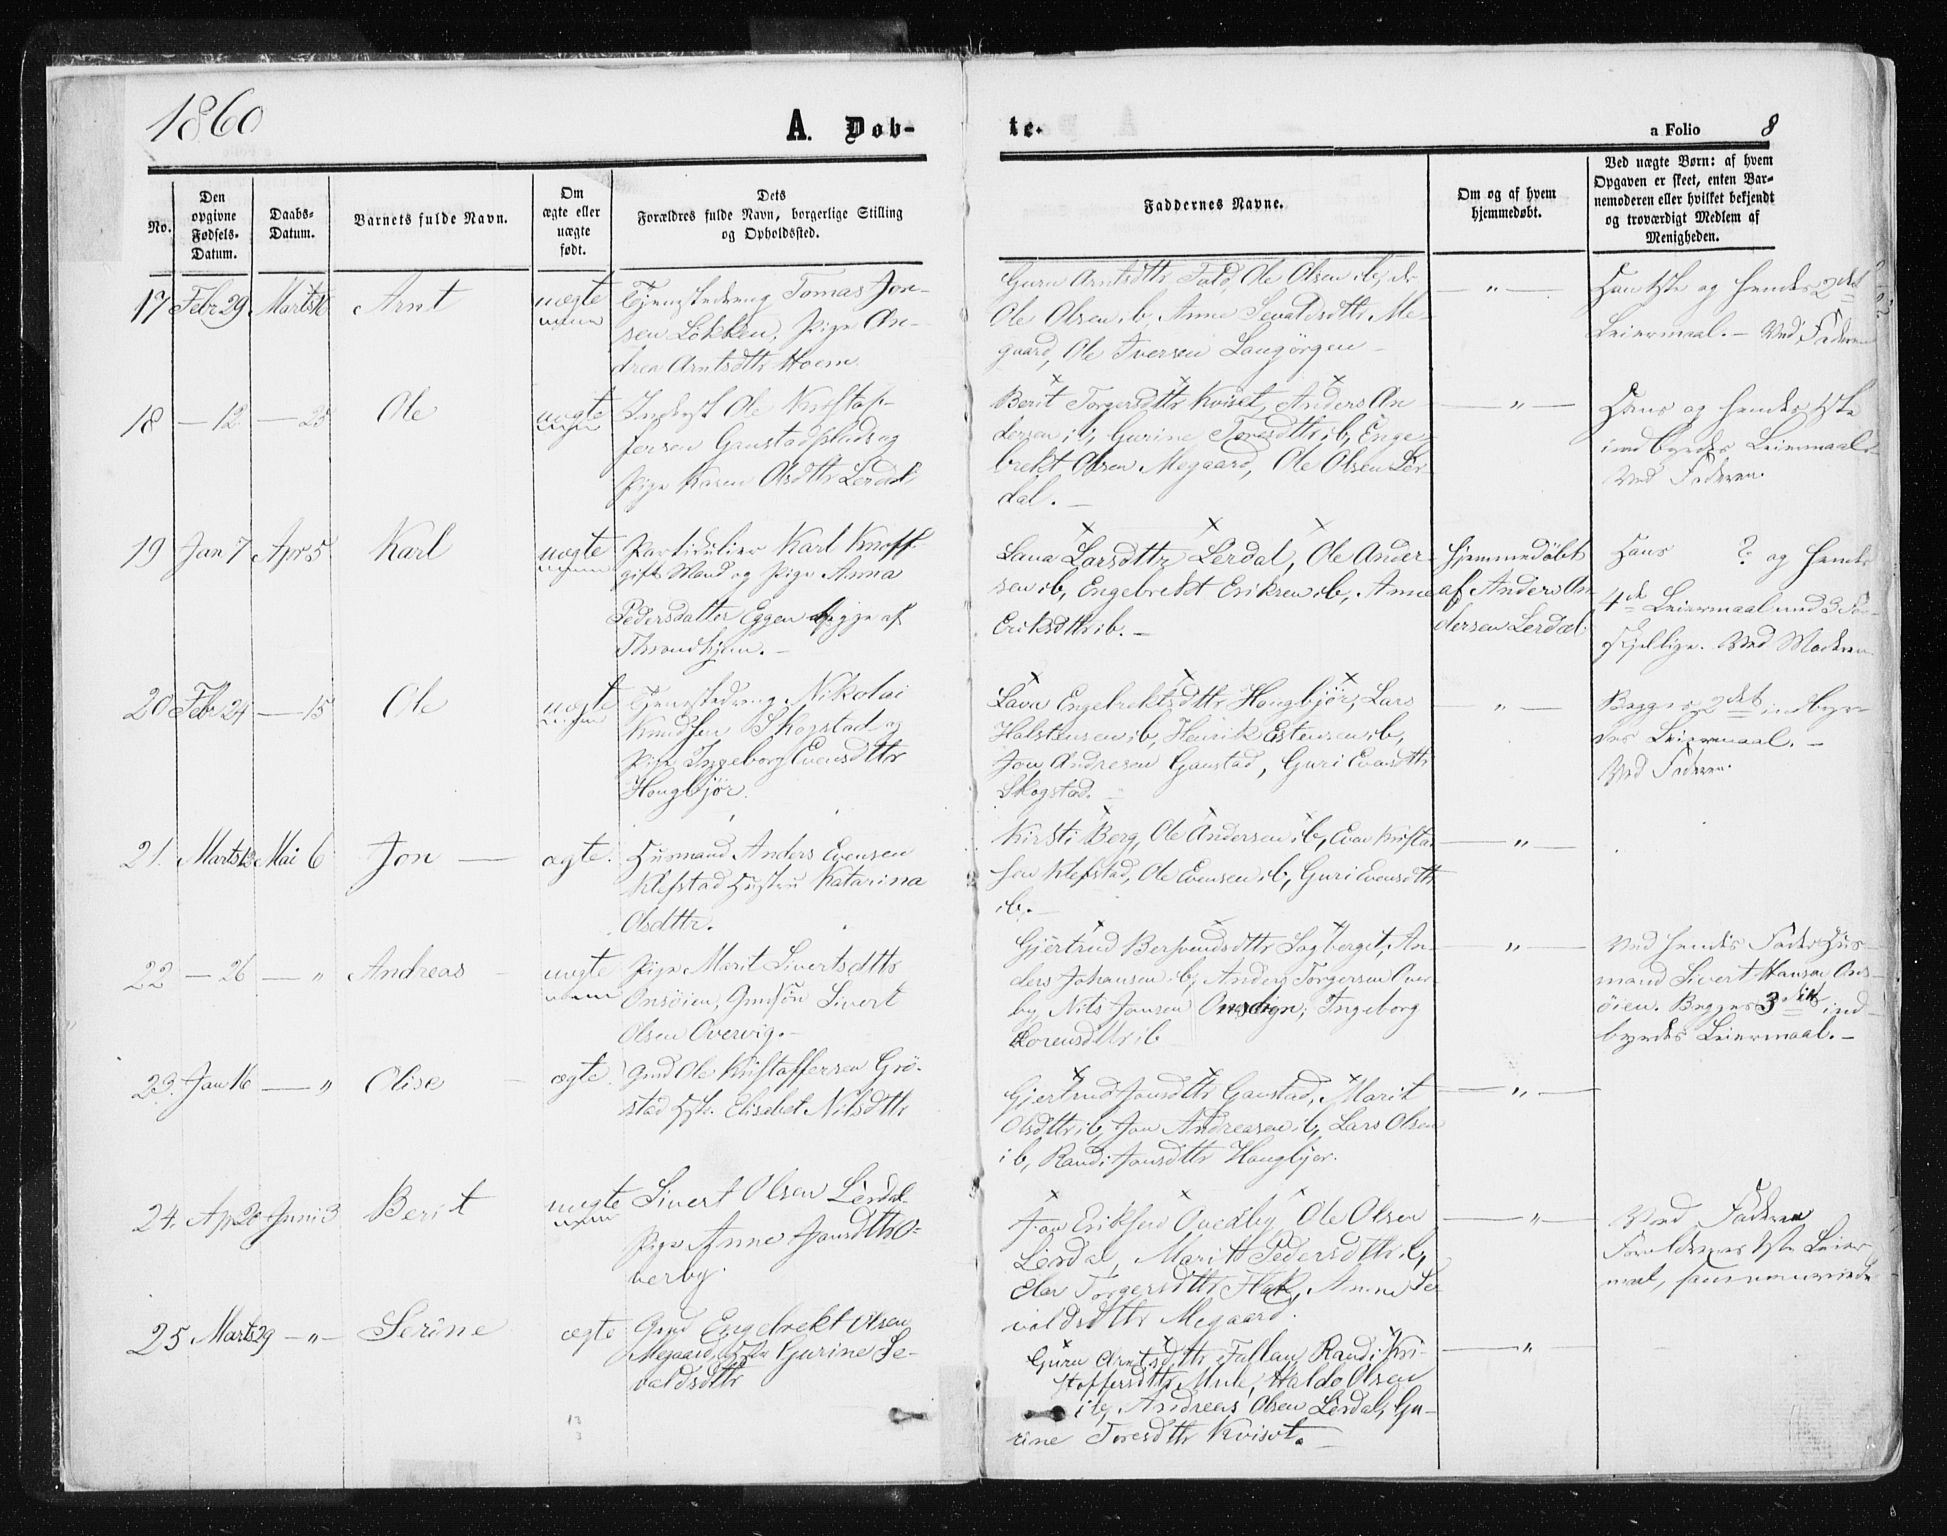 1860
A. Döb-
te.
a Folio 8
No.
Den opgivne Fødsels-Datum.
Daabs-Datum.
Barnets fulde Navn.
Om ægte eller uægte født.
Dets Forældres fulde Navn, borgerlige Stilling og Opholdssted.
Faddernes Navne.
Om og af hvem hjemmedøbt.
Ved uægte Børn: af hvem Opgaven er skeet, enten Barnemoderen eller hvilket bekjendt og troværdigt Medlem af Menigheden.
17 Febr 29 Marts 16 Arnt uægte
Tjenestedreng Tomas Jon-
sen Løkken, Pige An-
drea Arntsdttr Moem
Guru Arntsdttr Fald, Ole Olsen ib,
Ole Olsen ib, Anne Sevaldsdttr Me-
gaard, Ole Iversen Langörgen
— " —
Hans 1ste og hendes 2det
Leiermaal. – Ved Faderen
18 — 12 — 25 Ole uægte
Ole Kristof-
fersen Granstad og
Pige Karen Olsdttr Lerdal
Berit Torgersdttr Kviset, Anders An-
dersen ib, Gurine Toresdttr ib, Enge-
brekt Olsen Megaard, Ole Olsen Ler-
dal. —
— " —
Hans og hendes 1ste
indbyrdes Leiermaal.
Ved Faderen.
19 Jan 7 Apr 5 Karl uægte
Partikulier Karl Knoff
gift Mand og Pige Anna
Pedersdatter Eggen af
Throndhjem. —
Lava Larsdttr Lerdal, Ole Ander-
sen ib, Engebrekt Eriksen ib, Anne
Eriksdttr ib. —
hjemmedøbt
af Anders An-
dersen Lerdal
Hans ? og hendes
4de Leiermaal med 3 For-
skjellige. Ved Moderen.
20 Febr 24 — 15 Ole uægte
Tjenestedreng Nikolai
Knudsen Skogstad og
Pige Ingeborg Evensdttr
Hougbjør.
Lava Engebrektsdttr Hougbjör, Lars
Halstensen ib, Henrik Estensen ib,
Jon Andresen Ganstad, Guri Evensdttr
Skogstad.
— " —
Begges 2det indbyr-
des Leiermaal. —
Ved Faderen.
21. Marts 12 Mai 6 Jon — ægte.
Husmand Anders Evensen
Klefstad Hustru Katarina
Olsdttr.
Kirsti Berg, Ole Andersen ib, Even Kristof-
fen Klefstad, Ole Evensen ib, Guri Evensdttr
ib. —
— " —
22 — 26 — " Andreas uægte
Pige Marit Sivertsdttr
Onsöien, Sivert
Olsen Overvig. —
Gjertrud Bersvendsdttr Sagberget, An-
ders Johansen ib, Anders Torgersen Over-
by, Nils Jonsen Onsöien, Ingeborg
Lorensdttr ib
— " —
Ved hendes Fader Hus-
mand Sivert Hansen Ons-
öien. Begges 3die ind-
byrdes Leiermaal. —
23. Jan 16 — " Olise ægte.
Gmd Ole Kristoffersen Grö-
stad Elisabet Nilsdttr
Gjertrud Jonsdttr Ganstad, Marit
Olsdttr ib, Jon Andreasen ib, Lars Olsen
ib, Randi Jonsdttr Hougbjør.
— " —
24. Ap 20 Juni 3 Berit uægte
Sivert Olsen Lerdal
Pige Anne Jonsdttr O-
verby.
Jon Eriksen Overby, Ole Olsen
Lerdal, Marit Pedersdttr ib,
Torgersdttr Flak, Anne Se-
valdsdttr Megaard.
— " —
Ved Faderen
Forældrenes 1ste Leier-
maal,
25 Marts 29 — " — Serine ægte
Gmd Engebrekt Olsen
Megaard, Gurine Se-
valdsdttr
Guru Arntsdttr Fallan, Randi Kri-
stoffersdttr Mule, Haldo Olsen
ib, Andreas Olsen Lerdal, Gu-
rine Toresdttr Kviset.
— " —
13
3